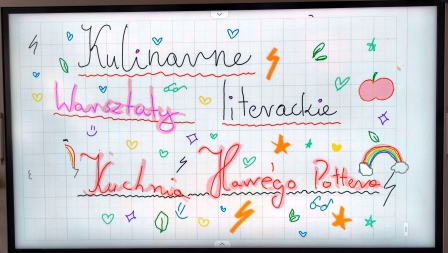 Kulinarne
Warsztaty literackie
Kuchnia Harrego Pottera